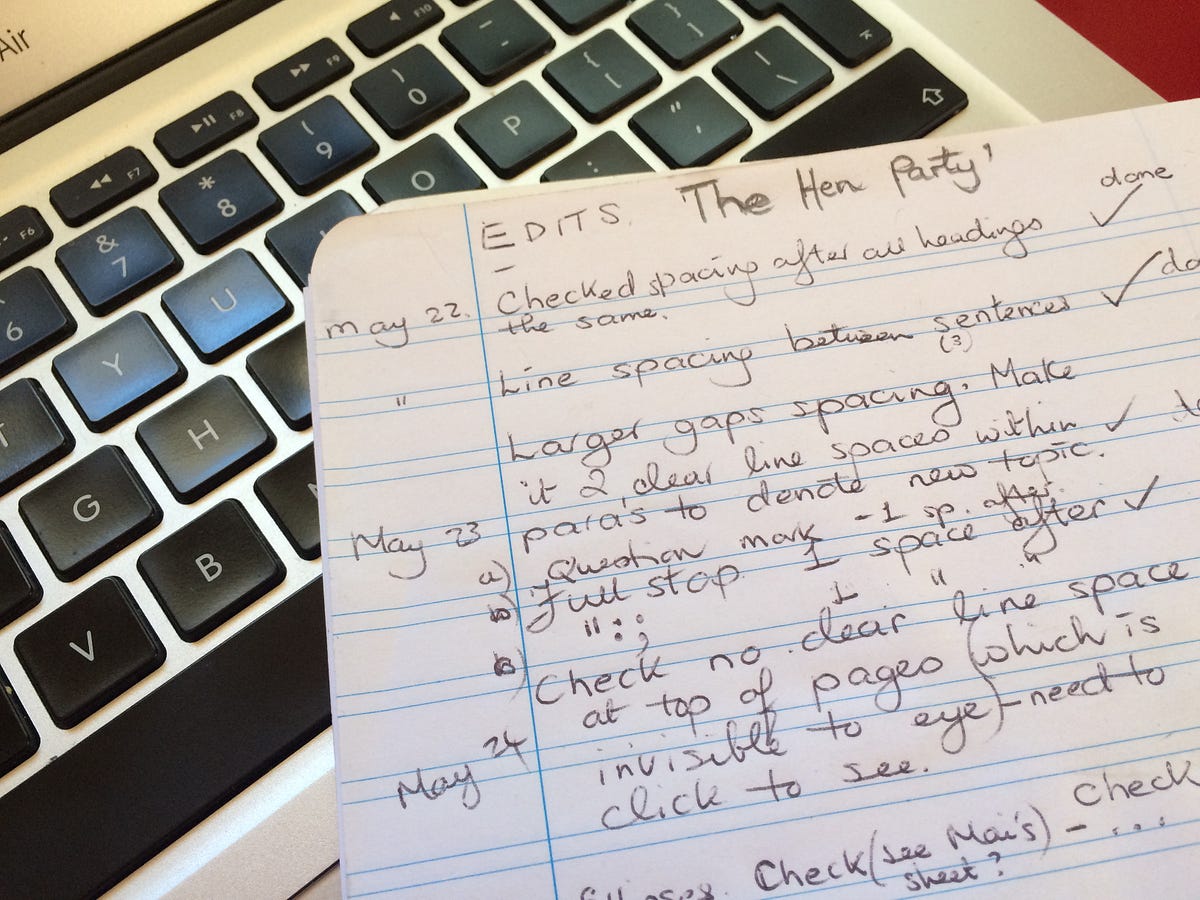 Air
F10
F9
F8
F7
F6
)
0
(
9
*
8
&
7
6
P
O
U
Y
T
H
G
B
V
EDITS. The Hen Party'
done
May 22. Checked spacing after all headings ✓
the same.
" Line spacing between sentences ✓
(3)
Larger gaps spacing. Make
it 2 clear line spaces within ✓
May 23 paras to denote new topic.
a) Question mark - 1 sp. after
b) Full stop. 1 space after ✓
" : ; 1 " "
Check no clear line space
at top of pages (which is
May 24 invisible to eye) - need to
click to see.
Check (see Mai's) - ... Check
sheet?